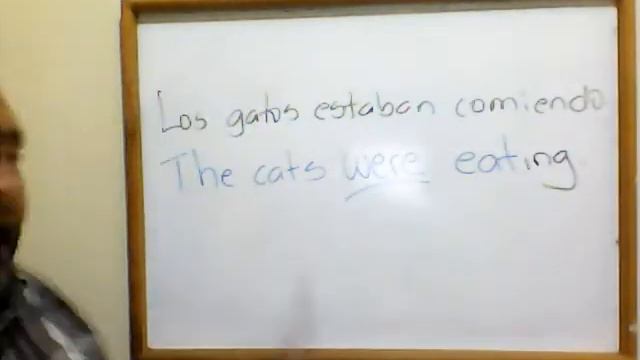 Los gatos estaban comiendo
The cats were eating